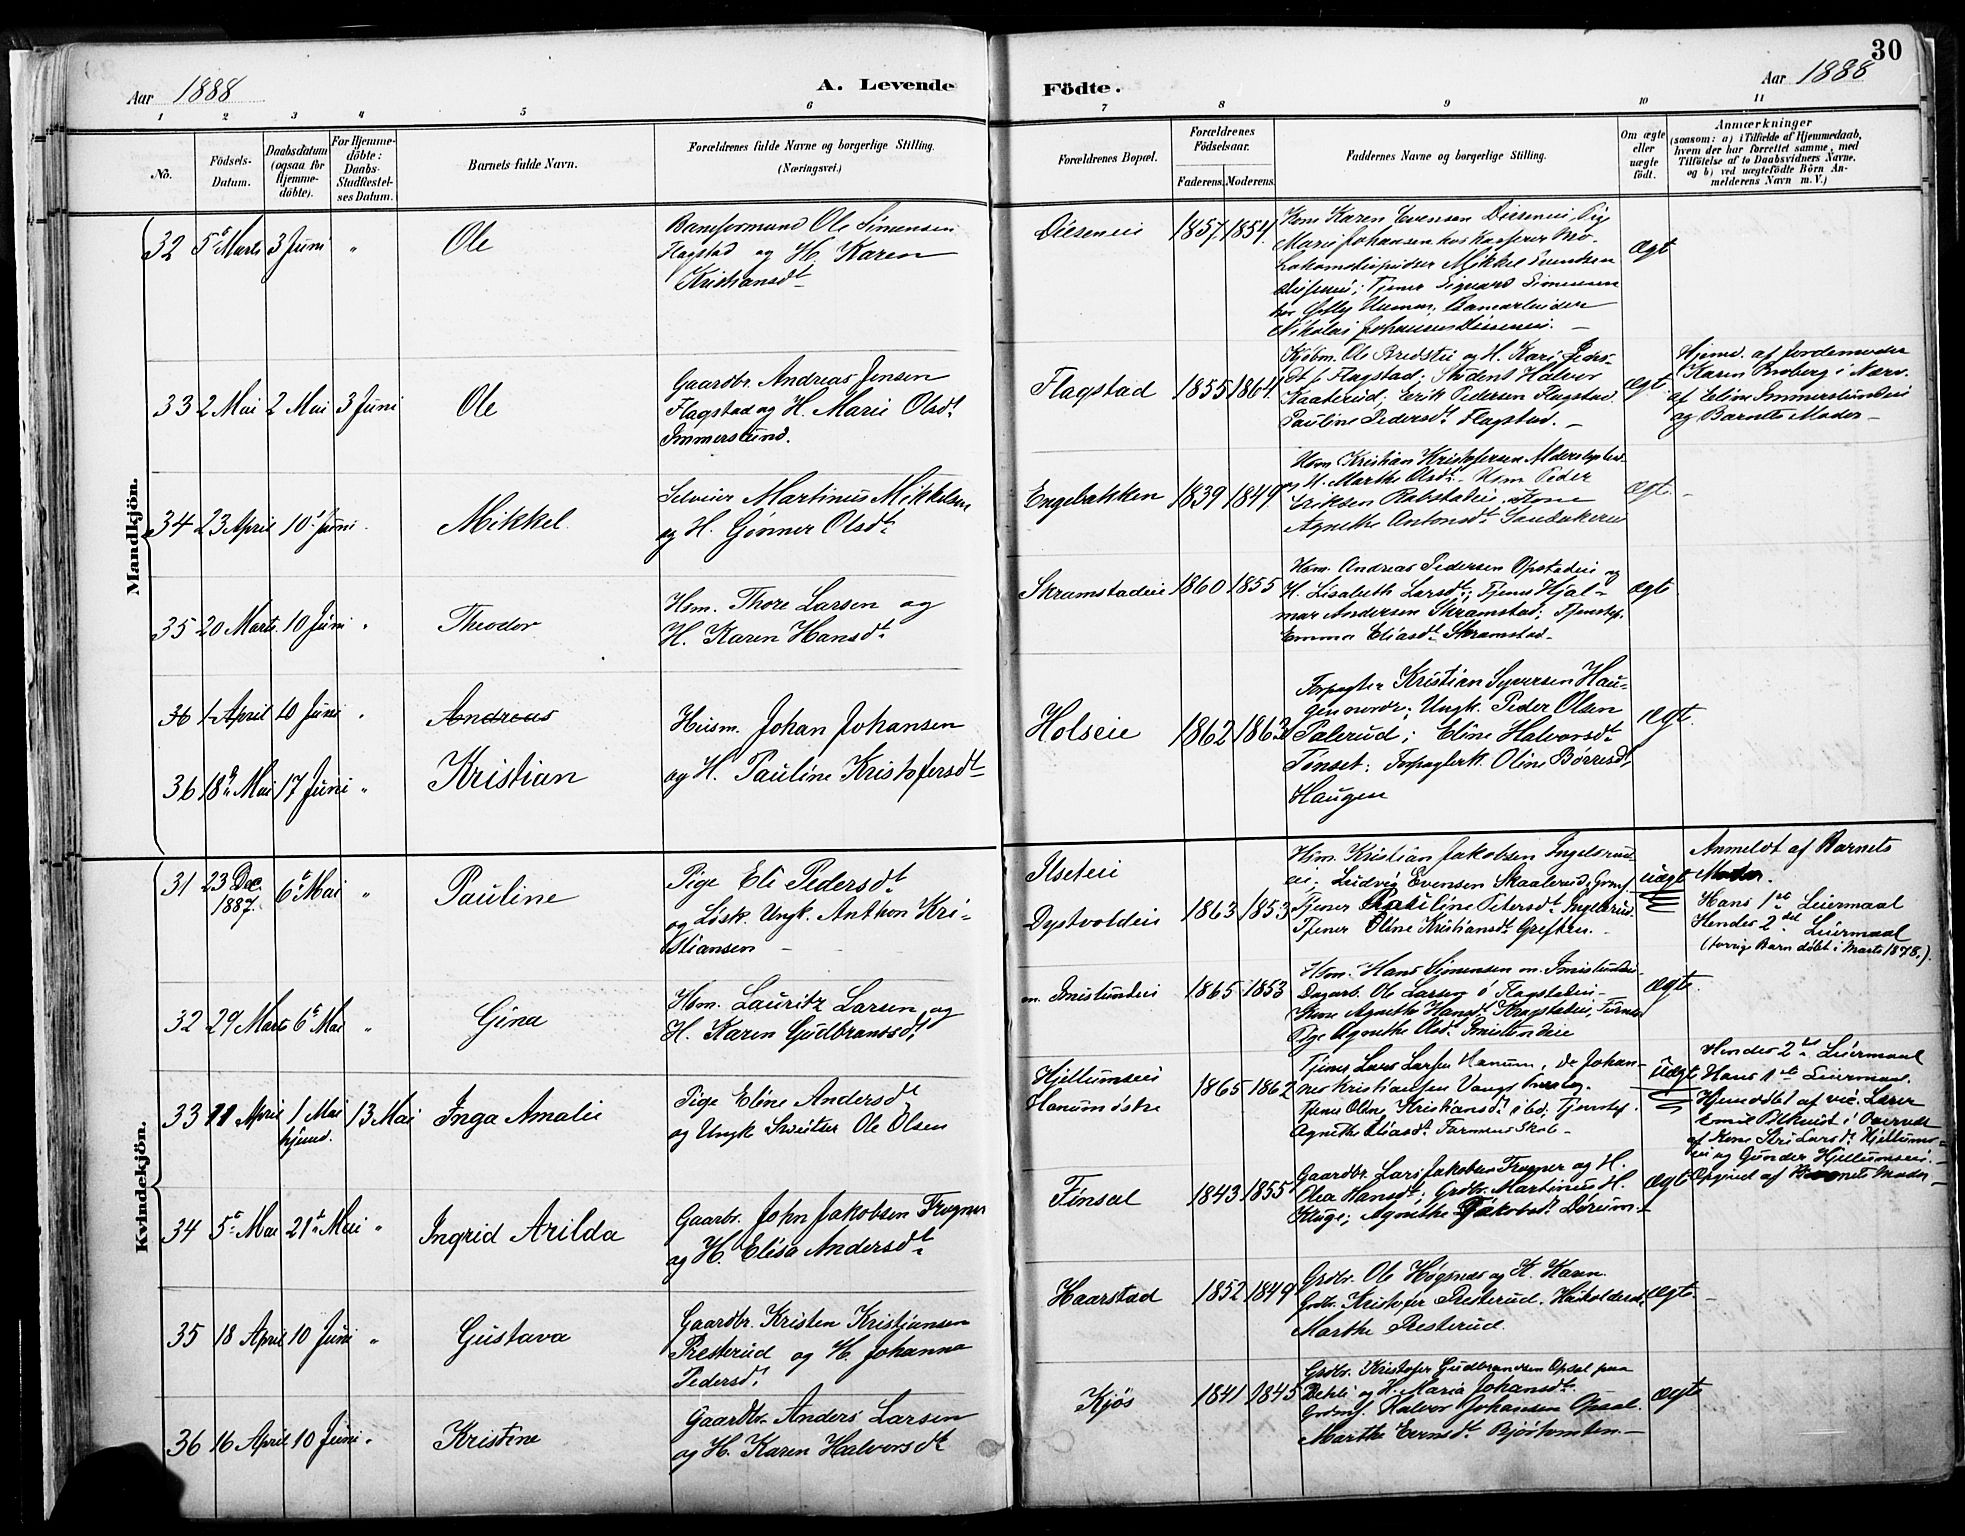 30
Aar 1888
A. Levende
Födte.
Aar 1888
1 2 3 4 5 6 7 8 9 10 11
No.
Födsels-
Datum.
Daabsdatum
(ogsaa for
Hjemme-
döbte).
For Hjemme-
döbte:
Daabs-
Stadfæstel-
ses Datum.
Barnets fulde Navn.
Forældrenes fulde Navne og borgerlige Stilling.
(Næringsvei.)
Forældrenes Bopæl.
Forældrenes
Födselsaar.
Faderens. Moderens.
Faddernes Navne og borgerlige Stilling.
Om ægte
eller
uægte
födt.
Anmærkninger
(saasom: a) i Tilfælde af Hjemmedaab,
hvem der har forrettet samme, med
Tilföielse af to Daabsvidners Navne.
og b) ved uægtefödte Börn An-
melderens Navn m. V.)
Mandkjön.
32 5 Marts 3 Juni " Ole
Ole Simensen
Flagstad og H. Karen
Kristiansdt
Dieseneie 1857 1854
Kone Karen Evensen Dieseneie, Pig
Marie Johansen hos Kasserer
Mikkel
Tjener Sigvard Simensen
Banearbeider
Nikolai Johansen Dieseneie. –
Ægt
33 2 Mai 2 Mai 3 Juni Ole
Gaardbr. Andreas Jensen
Flagstad og H. Marie Olsdt
Immerslund.
Flagstad 1855 1864
Kjøbm. Ole Bredstu og H. Kari Peders-
dt f. Flagstad; Student Halvor
Kaaterud; Erik Pedersen Flagstad.
Pauline Pedersdt Flagstad. –
Ægt
Hjemd. af Jordemoder
Karen Broberg i Nærv.
af Eline Immerslundeie
og Barnets Moder –
34 23 April 10 Juni " Mikkel
Selveier Martinus Mikkelsen
og H. Gunner Olsdt
Engebakken 1839 1849
Hsm. Kristian Kristofersen
og H. Marthe Olsdt. Hsm Peder
Eriksen Rabstadeie. Kone
Agnethe Antonsdt Sandakereie
Ægt. –
35 20 Marts 10 Juni " Theodor
Hsm. Thore Larsen og
H. Karen Hansdt
Skramstadeie 1860 1855
Hsm. Andreas Pedersen Opstadeie og
H. Lisabeth Larsdt; Tjener Hjal-
mar Andersen Skramstad; Tjenstep.
Emma Eliasdt Skramstad –
Ægte
36 1 April 10 Juni " Andreas
36 18 Mai 17 Juni " Kristian
Husm. Johan Johansen
og H. Pauline Kristofersdt
Holseie 1862 1863
Forpagter Kristian Syversen Hau-
gen nordr; Ungk. Peder Olsen
Palerud; Eline Halvorsdt
Finset; Forpagterk. Oline Børresdt,
Haugen
Ægt.
Kvindekjön.
31 23 Dec.
1887. 6 Mai " Pauline
Pige Eli Pedersdt
og Løsk. Ungk. Anthon Kri-
stiansen –
Ilseteie
Dystvoldeie 1863 1853
Hsm. Kristian Jakobsen Ingelsrud-
eie; Ludvig Evensen Skaalerud; Grmf.
Tjener Pauline Petersdt Ingelsrud.
Tjener Oline Kristiansdt Greften. –
Uægt
Anmeldt af Barnets
Moder.
Hans 1ste Leiermaal
Hendes 2det Leiermaal
(forrige Barn døbt i Marts 1878.)
32 29 Marts 6 Mai " Gina
Hsm. Lauritz Larsen og
H. Karen Gudbrandsdt
m. Imislundeie 1865 1853
Hsm. Hans Simensen m. Imislundeie.
Dagarb. Ole Larsen i Flagstadeie.
Kone Agnethe Hansdt
Pige Agnethe Olsdt Imislundeie
Ægte.
33 11 April 1 Mai
hjemd. 13 Mai Inga Amalie
Pige Eline Andersdt
og Ungk Sveitser Ole Olsen
Hjellumseie
Hanumøstre 1865 1862
Tjener Lars Larsen Hanum, do Johan-
nes Kristiansen Vangs
Tjener Oline Kristiansdt ibd. Tjenstep.
Agnethe Eliasdt Farmens Skole –
Uægt
Hendes 2det Leiermaal
Hans 1ste Leiermaal.
Hjemdøbt af vic. Lærer
Emil
af Kone Siri Larsdt Hjellums-
eie og Gunder Hjellumseie. –
Opgivet af Barnets Moder –
34 5 Mai 21 Mai " Ingrid Arilda
Gaarbr. John Jakobsen Frogner
og H. Elisa Andersdt
Finsal 1843 1855
Gaardbr. Lars Jakobsen Frogner og H.
Olea Hansdt; Grdbr. Martinius H.
Kluge; Agnethe Jakobsdt Dørum –
Ægt
35 18 April 10 Juni " Gustava
Gaardbr. Kristen Kristiansen
Presterud og H. Johanna
Pedersdt
Haarstad 1852 1849
Grdbr. Ole Høgsnes og K. Karen.
Grdbr. Kristofer Presterud. Husholdersk.
Marthe Presterud.
Ægte –
36 16 April 10 Juni " Kristine
Gaardbr. Anders Larsen
og H. Karen Halvorsdt
Kjøs 1841 1845
Grdbr. Kristofer Gudbrandsen Opsal paa
Dehli og H. Maria Johansdt.
Grdmf. Halvor Johansen Opsal.
Marthe Evensdt Bjørtomten –
Ægte